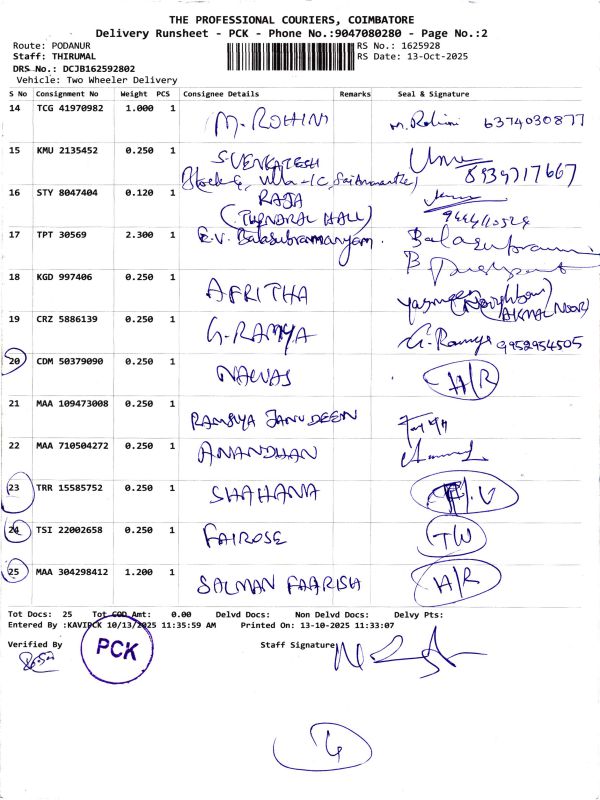 THE PROFESSIONAL COURIERS, COIMBATORE
Delivery Runsheet - PCK - Phone No.:9047080280 - Page No.:2
Route: PODANUR
Staff: THIRUMAL
DRS No.: DCJB162592802
Vehicle: Two Wheeler Delivery
RS No.: 1625928
RS Date: 13-Oct-2025
S No Consignment No Weight PCS Consignee Details Remarks Seal & Signature
14 TCG 41970982 1.000 1 M. ROHINI M. Rohini 6374030877
15 KMU 2135452 0.250 1 S. VENKATESH 8939717667
Block G, Villa
16 STY 8047404 0.120 1 RAJA
17 TPT 30569 2.300 1 E.V. Balasubramanyam. Balasubramani
18 KGD 997406 0.250 1 AFRITHA (Neighbour)
19 CRZ 5886139 0.250 1 G. RAMYA G. Ramya 9952954505
20 CDM 50379090 0.250 1 NAWAS H/R
21 MAA 109473008 0.250 1 RAMSIYA JANUDEEN
22 MAA 710504272 0.250 1 ANANDHAN
23 TRR 15585752 0.250 1 SHAHANA
24 TSI 22002658 0.250 1 FAIROSE TW
25 MAA 304298412 1.200 1 SALMAN FAARISH H/R
Tot Docs: 25 Tot COD Amt: 0.00 Delvd Docs: Non Delvd Docs: Delvy Pts:
Entered By :KAVIPCK 10/13/2025 11:35:59 AM Printed On: 13-10-2025 11:33:07
Verified By Staff Signature
PCK